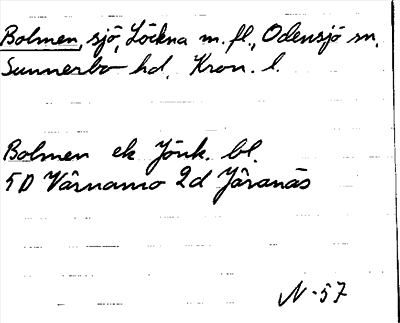 Bolmen, sjö, Löckna m. fl., Odensjö sn,
Sunnerbo hd, Kron. l.
Bolmen ek Jönk. bl.
5D Värnamo 2d Järanäs
N-57